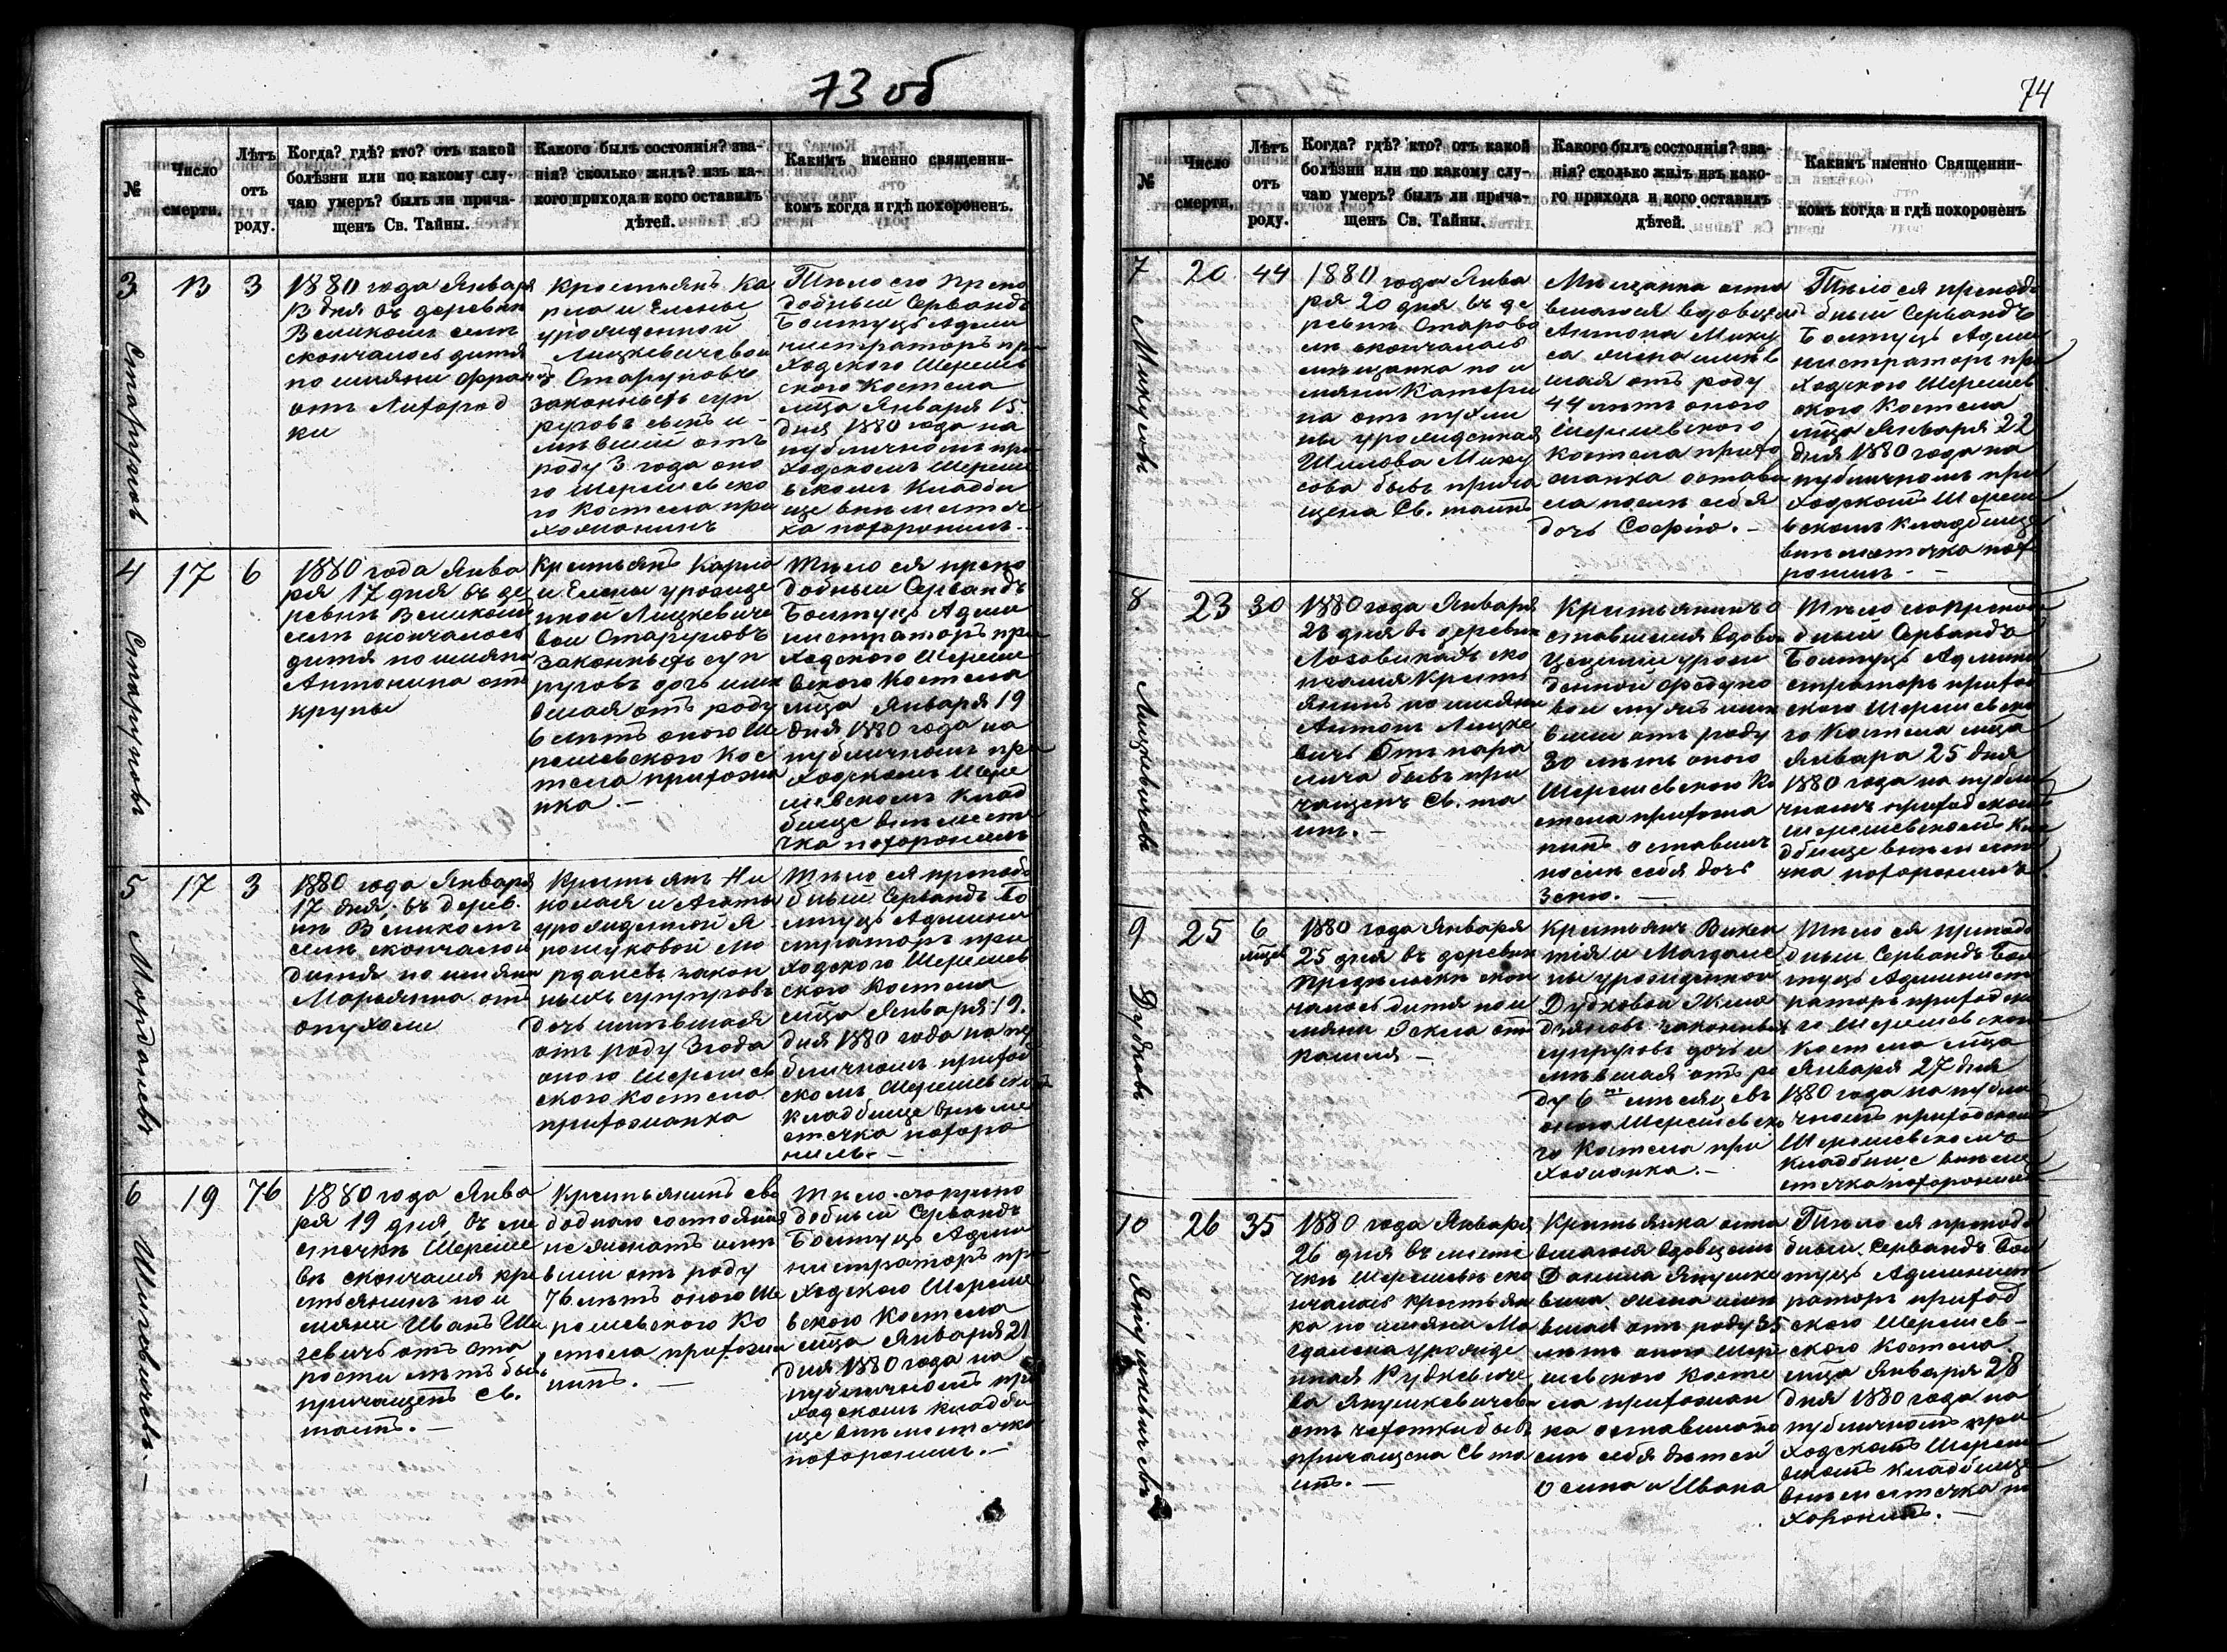 73 об
№
Число
смерти.
Лѣтъ
отъ
роду.
Когда? гдѣ? кто? отъ какой
болѣзни или по какому слу-
чаю умеръ? былъ ли прича-
щенъ Св. Тайны.
Какого былъ состоянія? зва-
нія? сколько жилъ? изъ ка-
кого прихода и кого оставилъ
дѣтей.
Какимъ именно священни-
комъ когда и гдѣ похороненъ.
3
Старуновъ
13
3
1880 года Января
13 дня въ деревни
Великомъ селѣ
скончалось дитя
по имяни Фран
отъ лихорад
ки
Крестьянъ Ка
рла и Елены
урожденной
Лицкевичевой
Старуновъ
законныхъ суп
руговъ сынъ и-
мѣвшій отъ
роду 3 года оно
го Шерешевско
го Костела при
хожанинъ
Тѣло его препо
добный Сервандъ
Болтуць Адми
нистраторъ при
ходского Шерешев
ского Костела
мѣца Января 15
дня 1880 года на
публичномъ при
ходскомъ Шереше
вскомъ Кладби
ще внѣ местеч
ка похоронилъ.-
4
Старуновъ
17
6
1880 года Янва
ря 17 дня въ де
ревнѣ Великомъ
селѣ скончалось
дитя по имяни
Антонина отъ
крупы
Крестьянъ Карла
и Елены урожде
нной Лицкевиче
вой Старуновъ
законныхъ суп
руговъ дочь имѣ
вшая отъ роду
6 лѣтъ оного Ше
решевского Кос
тела прихожа
нка.-
Тѣло ея препо
добный Сервандъ
Болтуць Адми
нистраторъ при
ходского Шереше
вского Костела
мѣца Января 19
дня 1880 года на
публичномъ при
ходскомъ Шере
шевскомъ Клад
бище внѣ месте
чка похоронилъ
5
Морданевъ
17
3
1880 года Января
17 дня, въ дерев.
нѣ Великомъ
селѣ скончалось
дитя по имяни
Марьянна отъ
опухоли
Крестьянъ Ни
колая и Агаты
урожденной Я
рошуковой Мо
рданевъ закон
ныхъ супруговъ
дочь имѣвшая
отъ роду 3 года
оного Шерешев
ского костела
прихожанка
Тѣло ея преподо
бный Сервандъ Бо
лтуць Админи
страторъ при
ходского Шерешев
ского Костела
мѣца Января 19.
дня 1880 года на пу
бличномъ приход
скомъ Шерешевскомъ
Кладбище внѣ ме
стечка похоро
нилъ.-
6
Шиговичевъ.-
19
76
1880 года Янва
ря 19 дня, въ ме
стечкѣ Шереше
въ скончался кре
стьянинъ по и
мяни Иванъ Ши
гевичъ отъ ста
рости лѣтъ бывъ
причащенъ Св.
таинъ.-
Крестьянинъ сво
бодного состоянія
не женатъ имѣ
вшій отъ роду
76 лѣтъ оного Ше
решевского Ко
стела прихожа
нинъ.-
Тѣло его препо
добный Сервандъ
Болтуць Адми
нистраторъ при
ходского Шереше
вского Костела
мѣца Января 21
дня 1880 года на
публичномъ при
ходскомъ кладби
ще внѣ местечка
похоронилъ.-
74
№
Число
смерти.
Лѣтъ
отъ
роду.
Когда? гдѣ? кто? отъ какой
болѣзни или по какому слу-
чаю умеръ? былъ ли прича-
щенъ Св. Тайны.
Какого былъ состоянія? зва-
нія? сколько жилъ изъ како-
го прихода и кого оставилъ
дѣтей.
Какимъ именно Священни-
комъ когда и гдѣ похороненъ
7
Микусовъ
20
44
1880 года Янва
ря 20 дня въ де
ревнѣ Старово
лѣ скончалась
мѣщанка по и
мяни Катери
на отъ пухли
ны урожденная
Шилова Мику
сова бывъ прича
щена Св. таинъ
Мѣщанка оста
вшаяся вдовцомъ
Антона Мику
са жена имѣв
шая отъ роду
44 лѣтъ оного
Шерешевского
Костела прихо
жанка остави
ла послѣ себя
дочь Софію.-
Тѣло ея преподо
бный Сервандъ
Болтуць Адми
нистраторъ при
ходского Шерешев
ского Костела
мѣца Января 22
дня 1880 года на
публичномъ при
ходскомъ Шереше
вскомъ кладбище
внѣ местечка похо
ронилъ.-
8
Лицкевичевъ
23
30
1880 года Января
23 дня въ деревни
Лозовикахъ ско
нчался Крестья
янинъ по имяни
Антонъ Лицке
вичъ Отъ пара
лича бывъ при
чащенъ Св. та
инъ.-
Крестьянинъ о
ставшейся вдовы
Цециліи урож
денной Федуно
вой мужъ имѣ
вшій отъ роду
30 лѣтъ оного
Шерешевского Ко
стела прихожа
нинъ оставилъ
послѣ себя дочь
Зеню.-
Тѣло его преподо
бный Сервандъ
Болтуць Админи
страторъ приход
ского Шерешевско
го Костела мѣца
Января 25 дня
1880 года на публи
чномъ приходскомъ
Шерешевскомъ Кла
дбище внѣ месте
чка похоронилъ.
9
Дудковъ
25
6
мѣцевъ
1880 года Января
25 дня въ деревни
скон
чалось дитя по и
мяни Текла отъ
кашля-
Крестьянъ Викен
тія и Магдале
ны урожденной
Дудковой
законныхъ
супруговъ дочь и
мѣвшая отъ ро
ду 6 мѣсяцевъ
оного Шерешевско
го Костела при
хожанка.-
Тѣло ея преподо
бный Сервандъ Бол
туць Админист
раторъ приходско
го Шерешевского
Костела мѣца
Января 27 дня
1880 года на публи
чномъ приходскомъ
Шерешевскомъ
кладбище внѣ ме
стечка похоронилъ
10
Янушкевичевъ
26
35
1880 года Января
26 дня въ месте
чкѣ Шерешевѣ ско
нчалась крестьян
ка по имяни Ма
гдалена урожде
нная Рудкевиче
ва Янушкевичева
отъ чахотки бывъ
причащена Св та
инъ.-
Крестьянка оста
вшаяся вдовцомъ
Данила Янушке
вича жена имѣ
вшая отъ роду 35
лѣтъ оного Шере
шевского Косте
ла прихожан
ка оставила по
слѣ себя дѣтей
Осипа и Ивана
Тѣло ея преподо
бный Сервандъ Бол
туць Админист
раторъ приход
ского Шерешев-
ского Костела
мѣца Января 28
дня 1880 года на
публичномъ при
ходскомъ Шереше
вскомъ кладбище
внѣ местечка по
хоронилъ.-